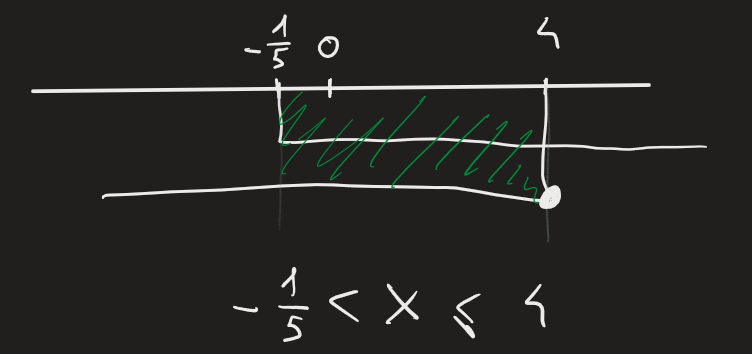 -1/5 0 4
-1/5 < x ≤ 4